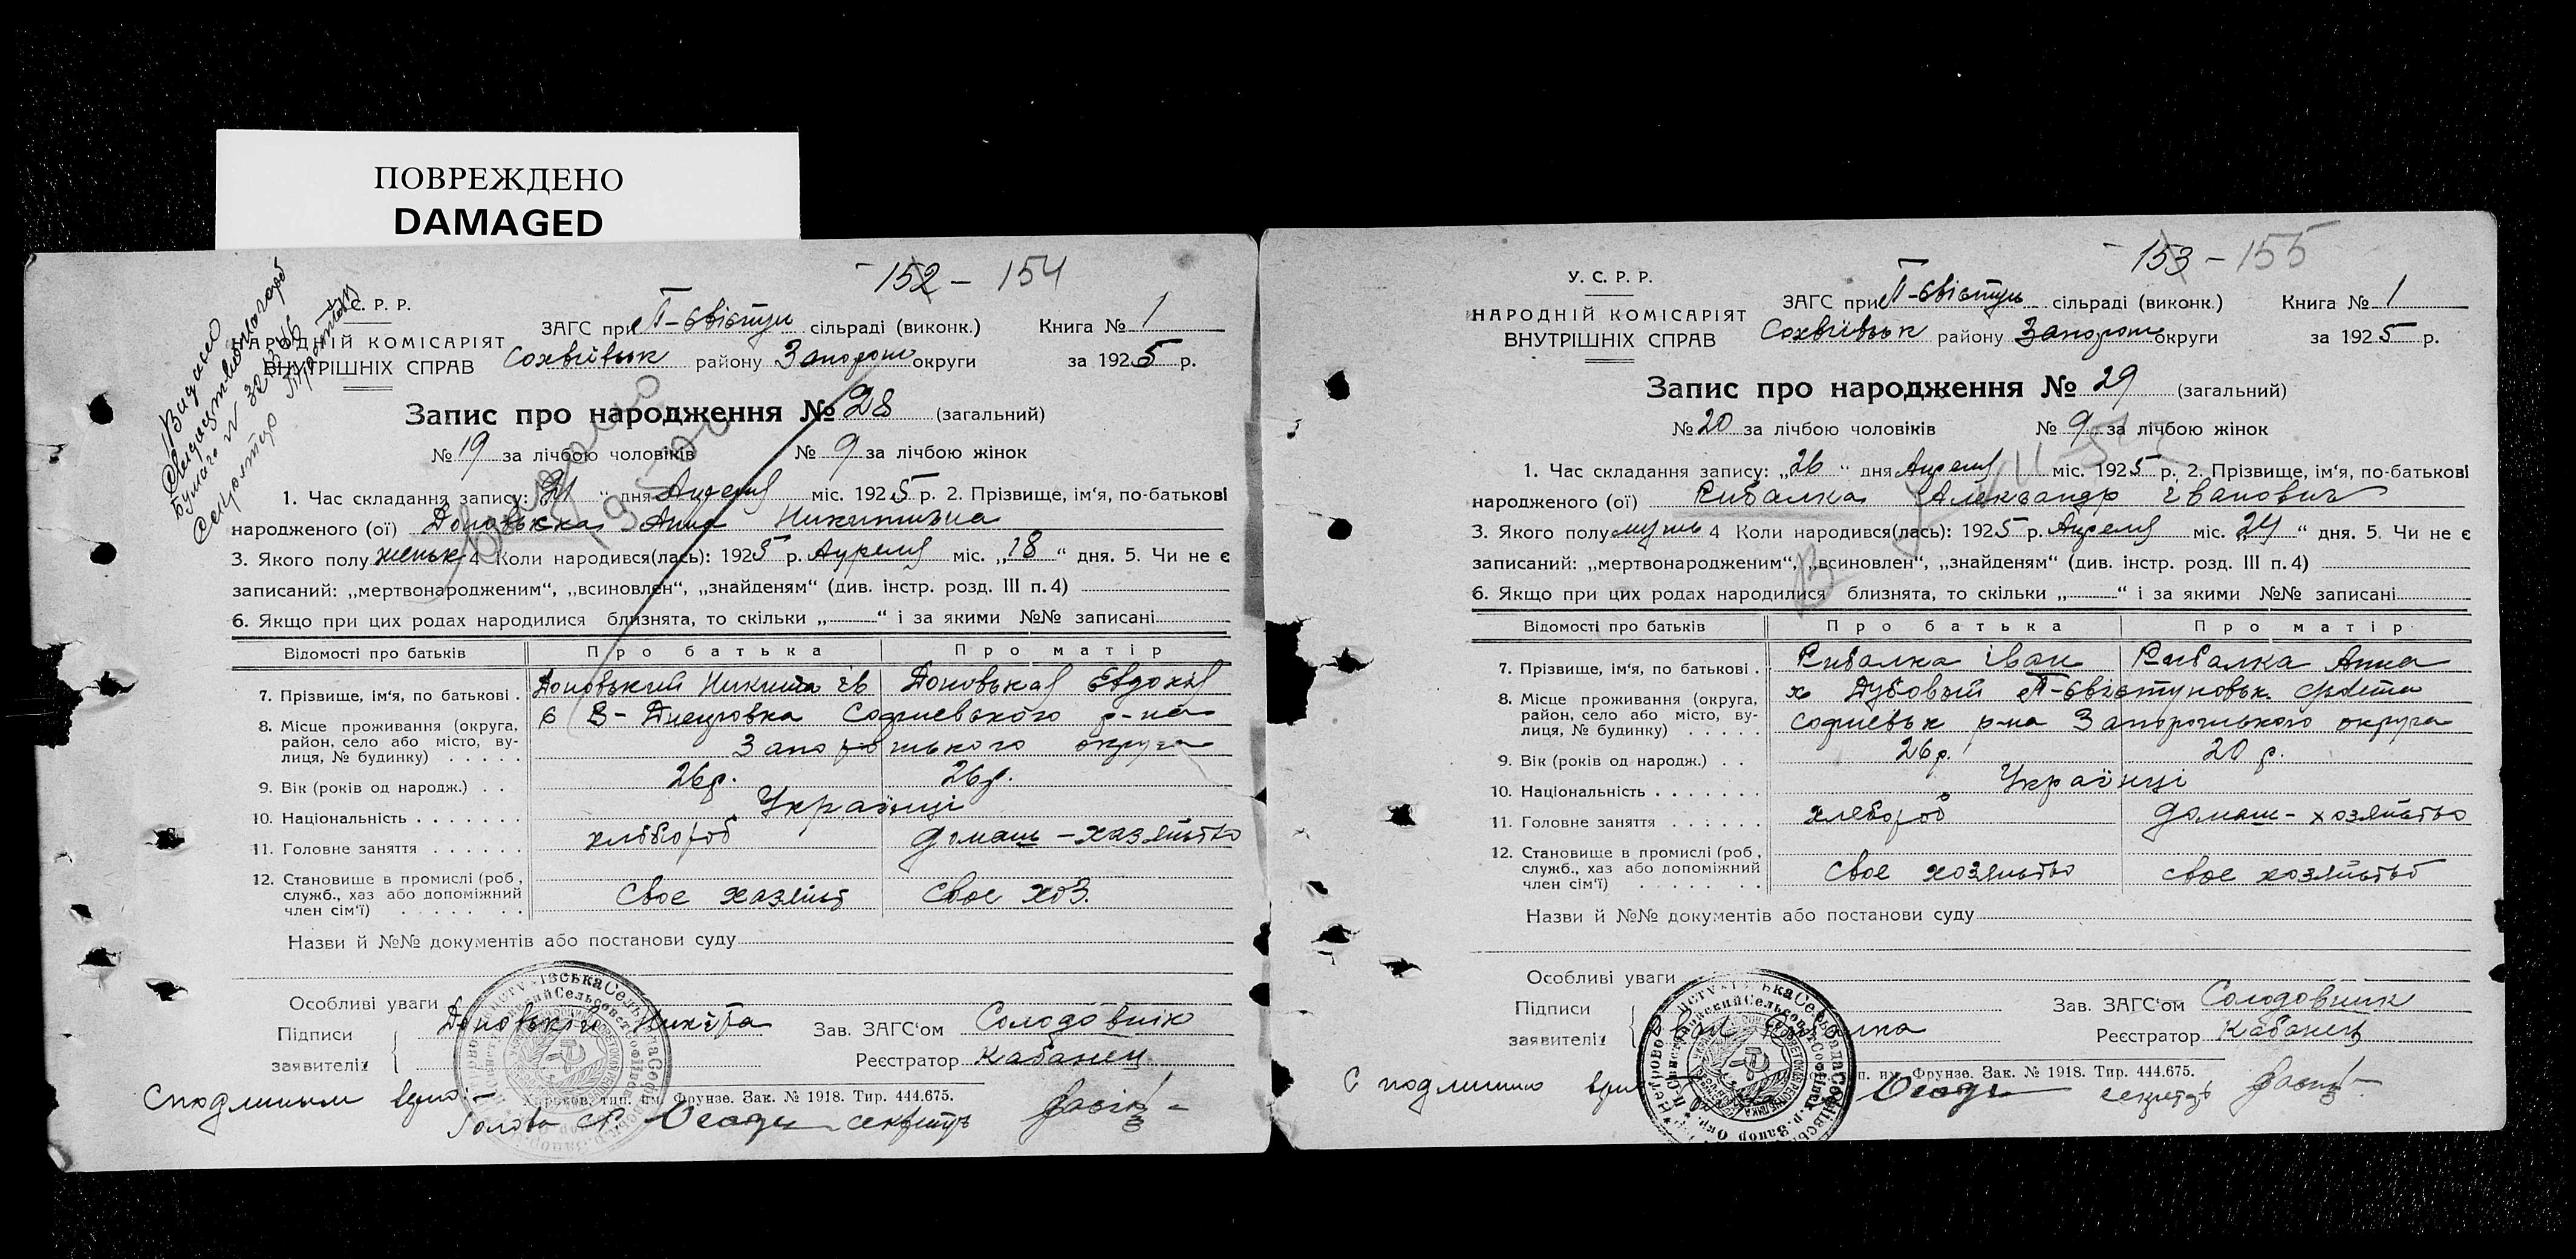 ПОВРЕЖДЕНО
DAMAGED
152 - 154
У. С. Р. Р.
НАРОДНІЙ КОМІСАРІЯТ
ВНУТРІШНІХ СПРАВ
ЗАГС при П-Свістун сільраді (виконк.) Книга № 1
Сохвіївськ району Запорож округи за 1925 р.
Запис про народження № 28 (загальний)
№ 19 за лічбою чоловіків № 9 за лічбою жінок
1. Час складання запису: „21“ дня Апреля міс. 1925 р. 2. Прізвище, ім‘я, по-батькові
народженого (ої) Анна Никитивна
3. Якого полу женськ 4 Коли народився(лась): 1925 р. Апреля міс. „18“ дня. 5. Чи не є
записаний: „мертвонародженим“, „всиновлен“, „знайденям“ (див. інстр. розд. III п. 4)
6. Якщо при цих родах народилися близнята, то скільки „ “ і за якими №№ записані
Відомості про батьків Про батька Про матір
7. Прізвище, ім‘я, по батькові . Никита Евдокія
8. Місце проживання (округа, район, село або місто, вулиця, № будинку) Софиевського р-на
Запорожського округа
9. Вік (років од народж.) . . 26 р. 26 р.
10. Національність Українці
11. Головне заняття хлібороб домаш-хазяйство
12. Становище в промислі (роб., служб., хаз або допоміжний член сім‘ї) свое хазяйст свое хоз.
Назви й №№ документів або постанови суду
Особливі уваги
Підписи
заявителів
Нікіта
Зав. ЗАГС‘ом Солодовник
Реєстратор Кабанец
Харьков, тип. им. Фрунзе. Зак. № 1918. Тир. 444.675.
С подлинным верно:
Голова секретарь
153 - 155
У. С. Р. Р.
НАРОДНІЙ КОМІСАРІЯТ
ВНУТРІШНІХ СПРАВ
ЗАГС при П-Свістун сільраді (виконк.) Книга № 1
Сохвіївськ району Запорож округи за 1925 р.
Запис про народження № 29 (загальний)
№ 20 за лічбою чоловіків № 9 за лічбою жінок
1. Час складання запису: „26“ дня Апреля міс. 1925 р. 2. Прізвище, ім‘я, по-батькові
народженого (ої) Рибалка Александр Іванович
3. Якого полу мужь 4 Коли народився(лась): 1925 р. Апреля міс. „24“ дня. 5. Чи не є
записаний: „мертвонародженим“, „всиновлен“, „знайденям“ (див. інстр. розд. III п. 4)
6. Якщо при цих родах народилися близнята, то скільки „ “ і за якими №№ записані
Відомості про батьків Про батька Про матір
7. Прізвище, ім‘я, по батькові . Рибалка Іван Рибалка Анна
8. Місце проживання (округа, район, село або місто, вулиця, № будинку) х Дубовый П-Свістуновськ
Софиевьк р-на Запорожського округа
9. Вік (років од народж.) . . 26 р. 20 р.
10. Національність Українці
11. Головне заняття хлебороб домаш-хозяйство
12. Становище в промислі (роб., служб., хаз або допоміжний член сім‘ї) свое хозяйство свое хозяйство
Назви й №№ документів або постанови суду
Особливі уваги
Підписи
заявителів
Зав. ЗАГС‘ом Солодовник
Реєстратор Кабанец
им. Фрунзе. Зак. № 1918. Тир. 444.675.
С подлинно
секретарь